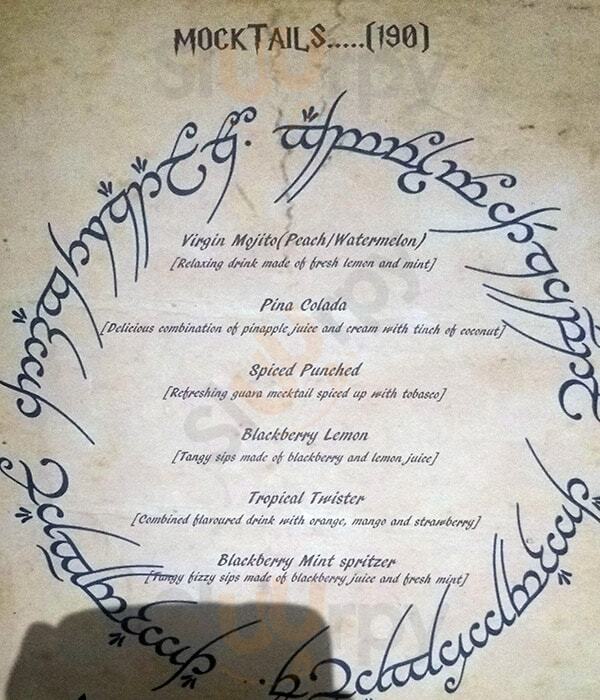 MOCKTAILS.....(190)
Virgin Mojito(Peach/Watermelon)
[Relaxing drink made of fresh lemon and mint]
Pina Colada
[Delicious combination of pinapple juice and cream with tinch of coconut]
Spiced Punched
[Refreshing guava mocktail spiced up with tobasco]
Blackberry Lemon
[Tangy sips made of blackberry and lemon juice]
Tropical Twister
[Combined flavoured drink with orange, mango and strawberry]
Blackberry Mint spritzer
[Tangy fizzy sips made of blackberry juice and fresh mint]